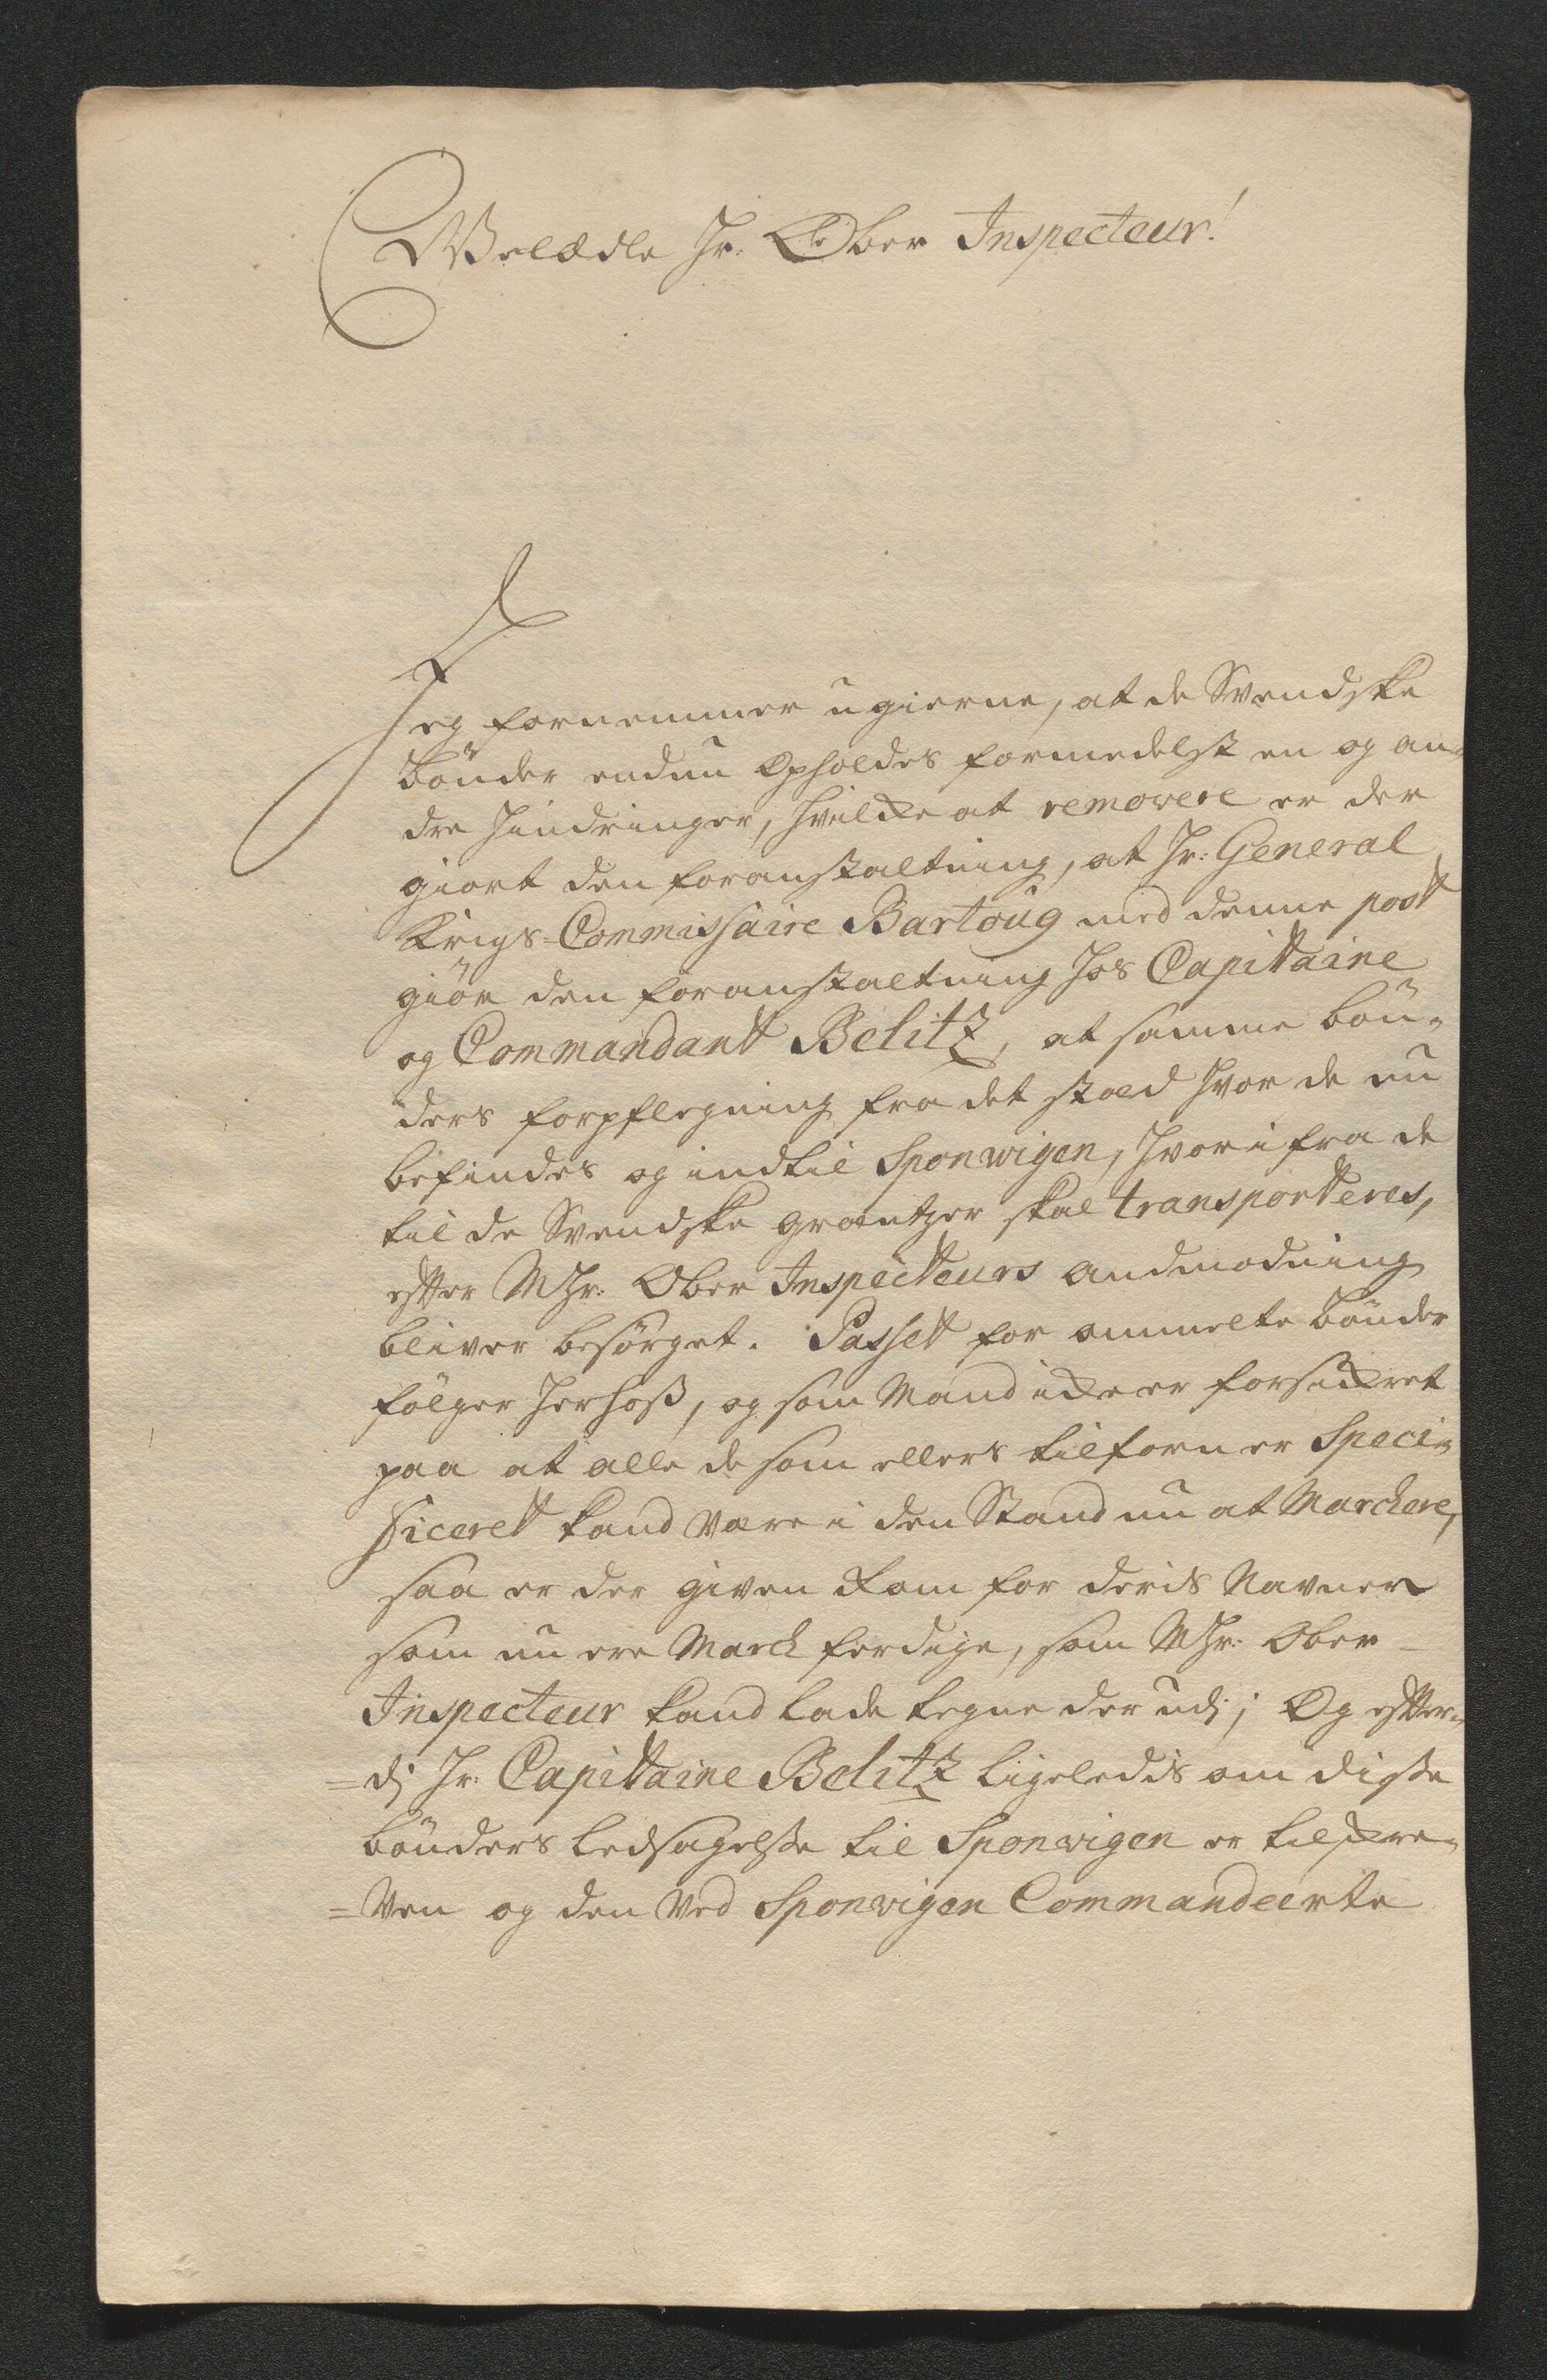 Welædle Hr. Ober Inspecteur!
Jeg fornemmer ugierne, at de Svendske
bönder endnu Opholdes formedelst en og an-
dre Hindringer, hvilke at removere er der
giort den foranstaltning, at Hr: General
Krigs-Commissaire Bartoug med denne post
giör den foranstaltning hos Capitaine
og Commandant Belitz, at samme bön-
ders forpflegning fra det stæd hvor de nu
befindes og indtil Sponwigen, hvorifra de
til de Svendske græntzer skal transporteres,
effter MHr: Ober Inspecteurs andmodning
bliver besörget. Passet for ommelte bönder
fölger herhoß, og som Mand icke er forsickret
paa at alle de som ellers tilforn er Speci-
ficeret kand være i den Stand nu at Marchere,
saa er der given Rom for deris Navner
som nu ere March ferdige, som MHr: Ober
Inspecteur kand lade tegne der udj; Og effter-
=dj Hr: Capitaine Belitz ligeledis om disse
bönders ledsagelse til Sponvigen er tilskre-
=ven og den ved Sponvigen Commandeerte